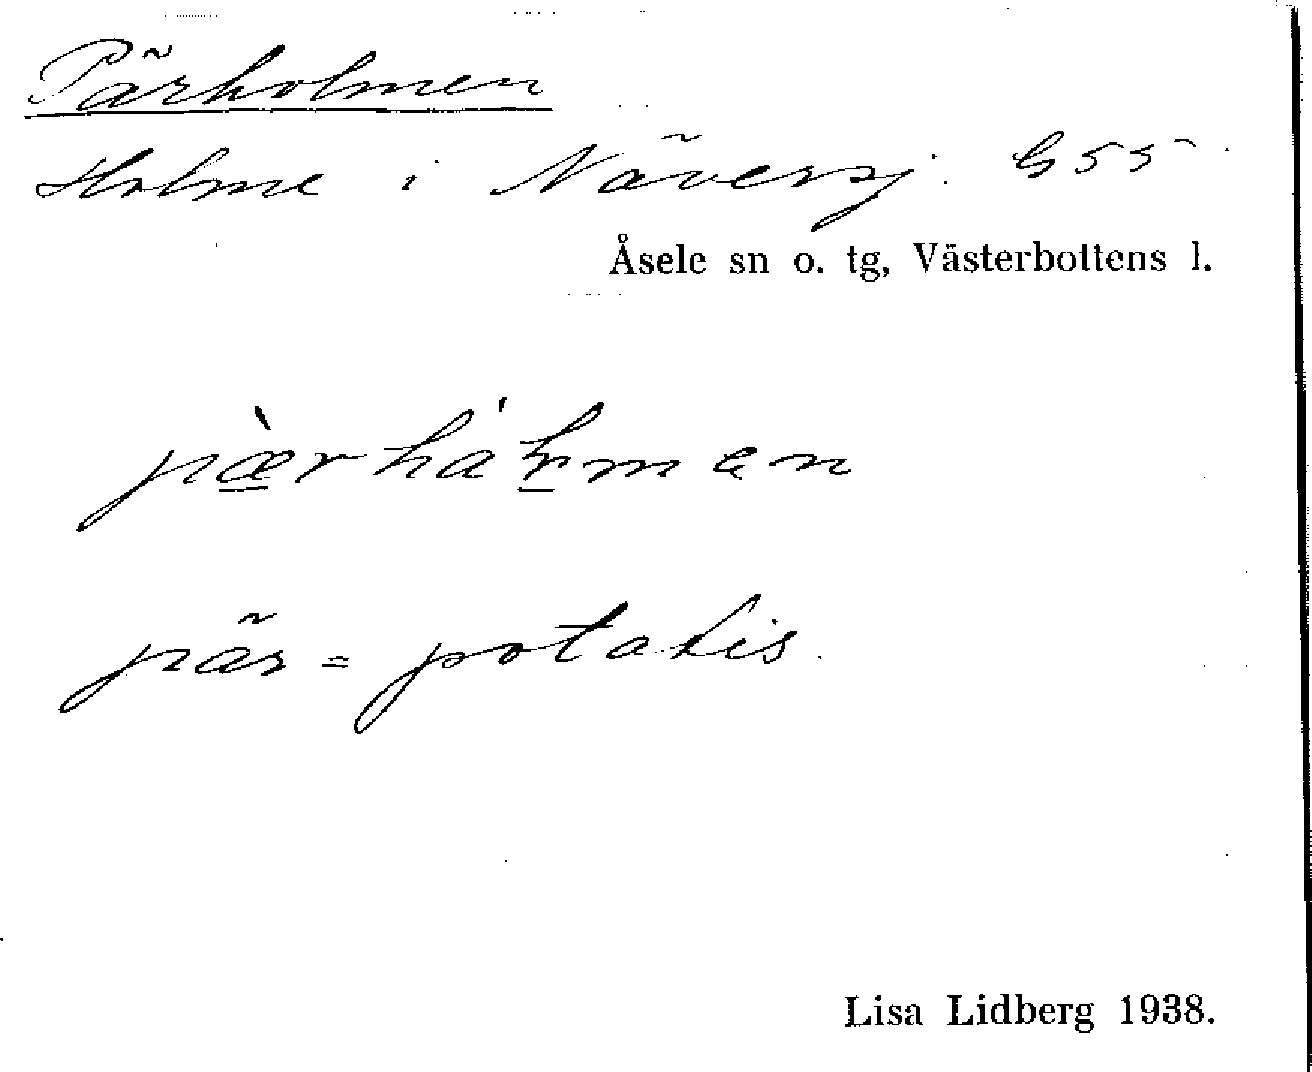 Pärholmen
Holme i Näversj. G55
Åsele sn o. tg, Västerbottens l.
pæ̀rhåḷmen
pär = potatis.
Lisa Lidberg 1938.